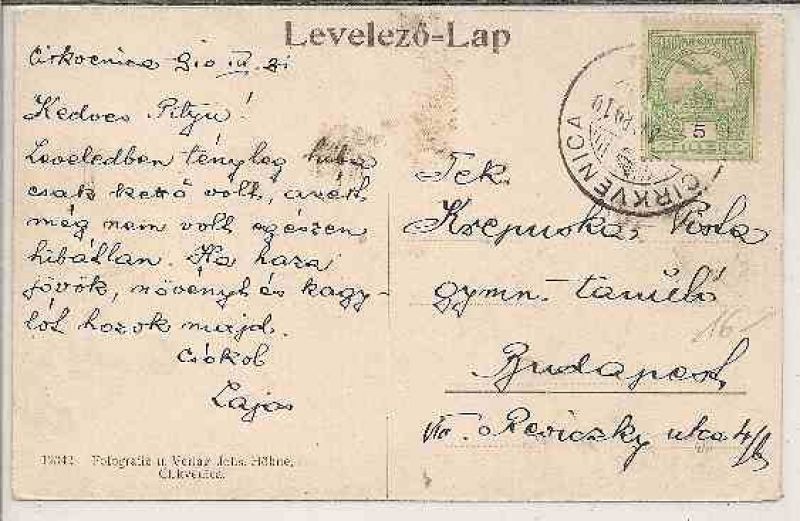 Levelező-Lap
Cirkvenica 910 IV. 21
Kedves Pityu!
Leveledben tényleg hiba
csak kettő volt, azért
még nem volt egészen
hibátlan. Ha haza
jövök, növényt és kagy-
lót hozok majd.
Csókol
Lajos
Tek.
Krepuska, Pista
gymn. tanuló
Budapest
VIII. Reviczky utca 4/b
16-
CIRKVENICA
CIRKVENICA
5
Fotografie u. Verlag Johs. Höhne,
Cirkvenica.